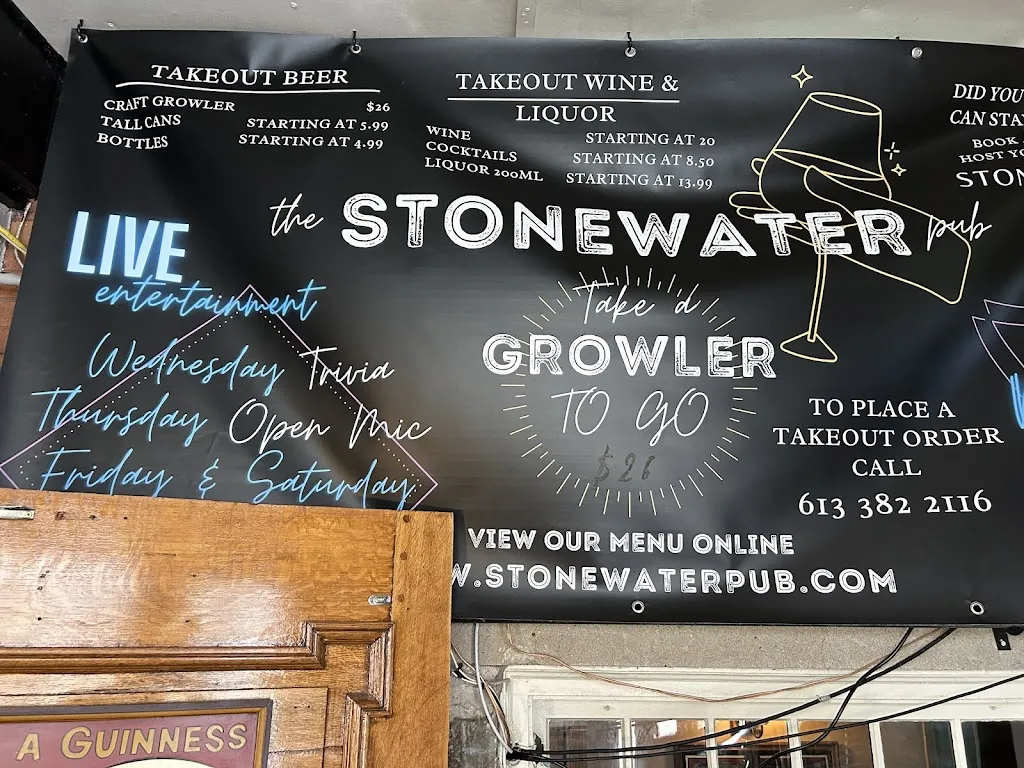 TAKEOUT BEER
CRAFT GROWLER $26
TALL CANS STARTING AT 5.99
BOTTLES STARTING AT 4.99
TAKEOUT WINE &
LIQUOR
WINE STARTING AT 20
COCKTAILS STARTING AT 8.50
LIQUOR 200ML STARTING AT 13.99
DID YOU
CAN STA
BOOK
HOST YO
STON
the STONEWATER pub
LIVE
entertainment
Wednesday Trivia
Thursday Open Mic
Friday & Saturday
Take a
GROWLER
TO GO
$26
TO PLACE A
TAKEOUT ORDER
CALL
613 382 2116
VIEW OUR MENU ONLINE
W.STONEWATERPUB.COM
A GUINNESS